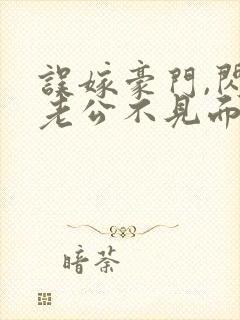 誤嫁豪門,閃
老公不見面
暗荼